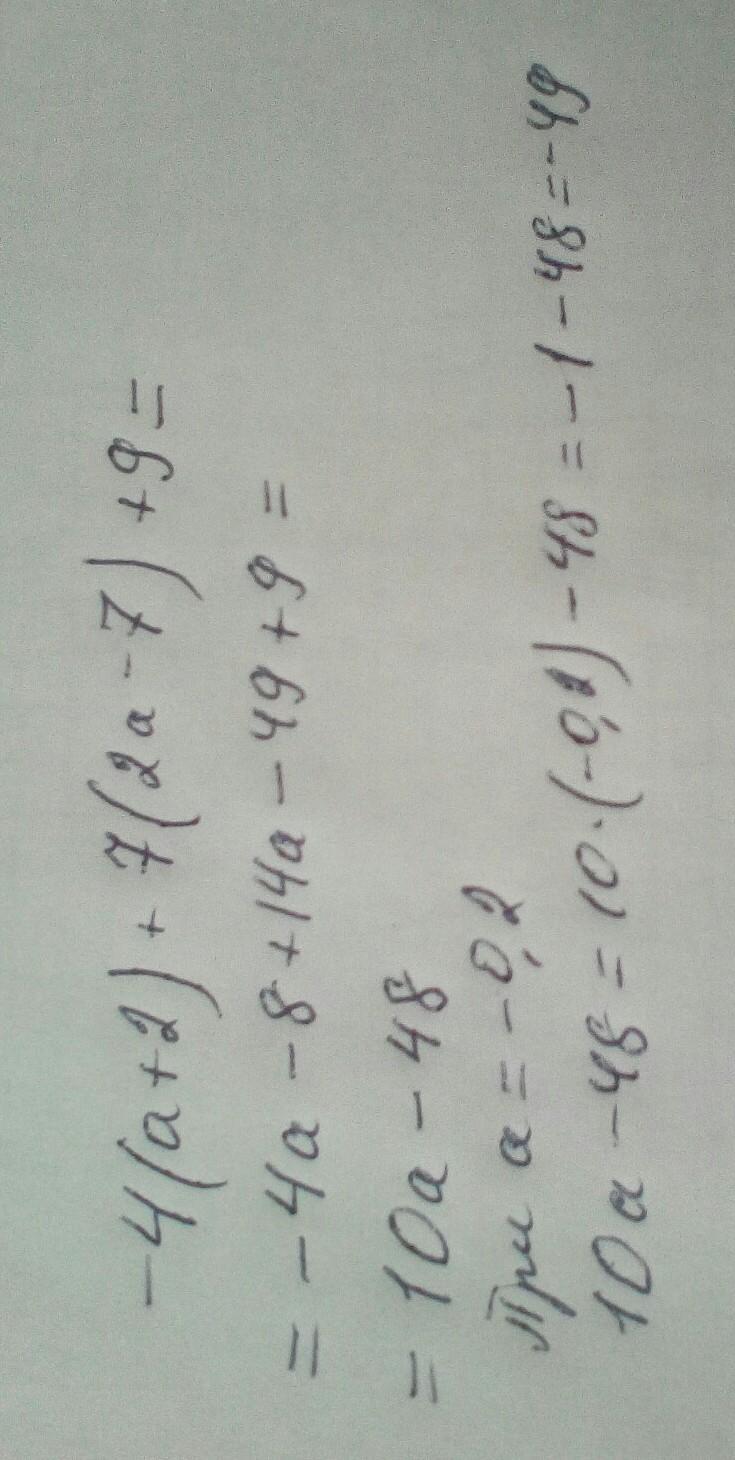 -4(a+2)+7(2a-7)+9=
=-4a-8+14a-49+9=
=10a-48
При a=-0,2
10a-48=10·(-0,2)-48=-1-48=-49